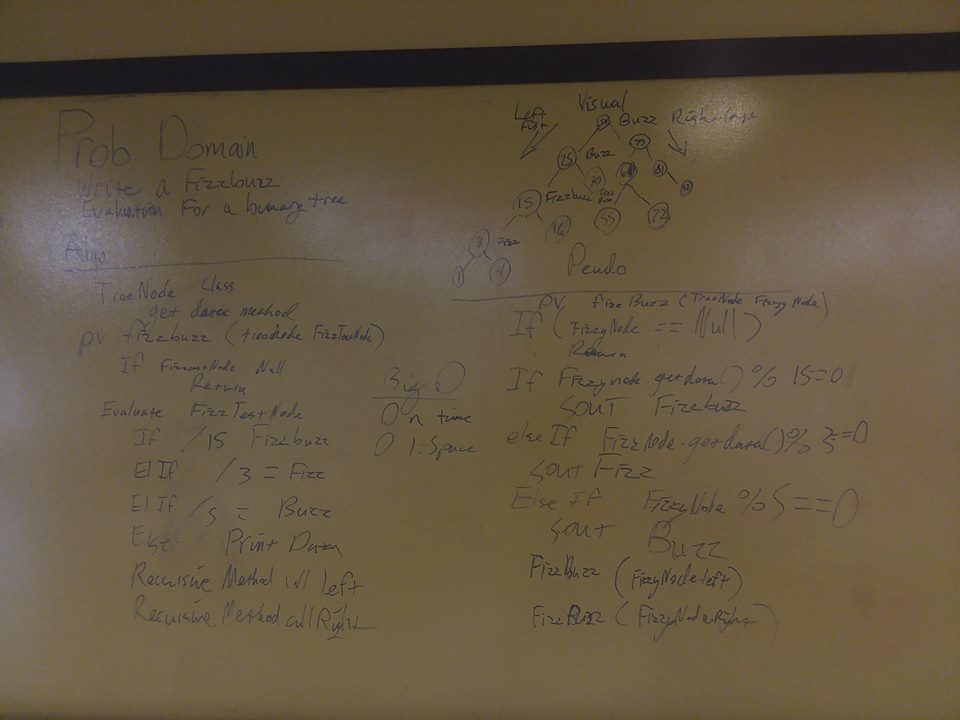 Prob Domain
Write a Fizzbuzz
Evaluation For a binary tree
Algo
TreeNode Class
get data method
pv fizzbuzz (treeNode FizzTestNode)
If Node Null
Return
Evaluate FizzTestNode
If /15 Fizzbuzz
El If /3 = Fizz
El If /5 = Buzz
Else Print Data
Recursive Method call left
Recursive Method call Right
Big O
O n time
O 1 Space
Visual
Left First
Right Last
Buzz
25 Buzz
30
15 Fizzbuzz
16 55 72
Fizz
1 4
Psudo
pv fizzBuzz (TreeNode FizzyNode)
If (FizzyNode == Null)
Return
If Fizzynode.getdata() % 15=0
sout Fizzbuzz
else If FizzNode.getdata()% 3=0
sout Fizz
Else If FizzyNode % 5==0
sout Buzz
FizzBuzz (FizzyNode.left)
FizzBuzz (FizzyNode.Right)